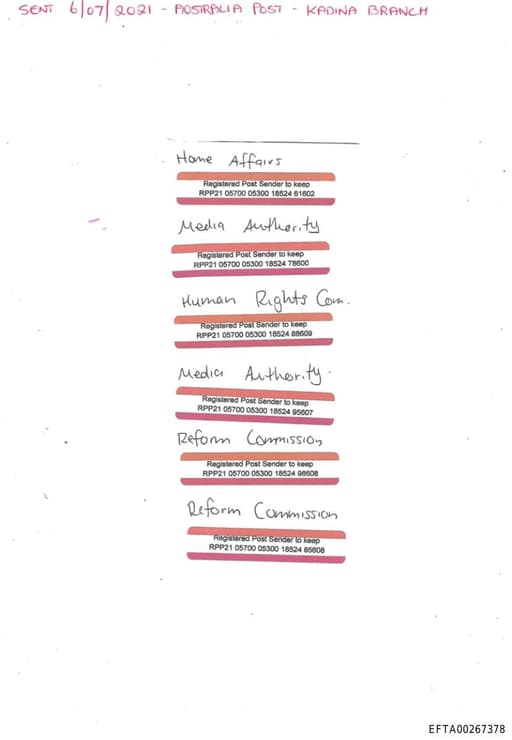 SENT 6/07/2021 - AUSTRALIA POST - KADINA BRANCH
Home Affairs
Registered Post Sender to keep
RPP21 05700 05300 18524 61602
Media Authority
Registered Post Sender to keep
RPP21 05700 05300 18524 78600
Human Rights Com.
Registered Post Sender to keep
RPP21 05700 05300 18524 88609
Media Authority.
Registered Post Sender to keep
RPP21 05700 05300 18524 95607
Reform Commission
Registered Post Sender to keep
RPP21 05700 05300 18524 98608
Reform Commission
Registered Post Sender to keep
RPP21 05700 05300 18524 85608
EFTA00267378